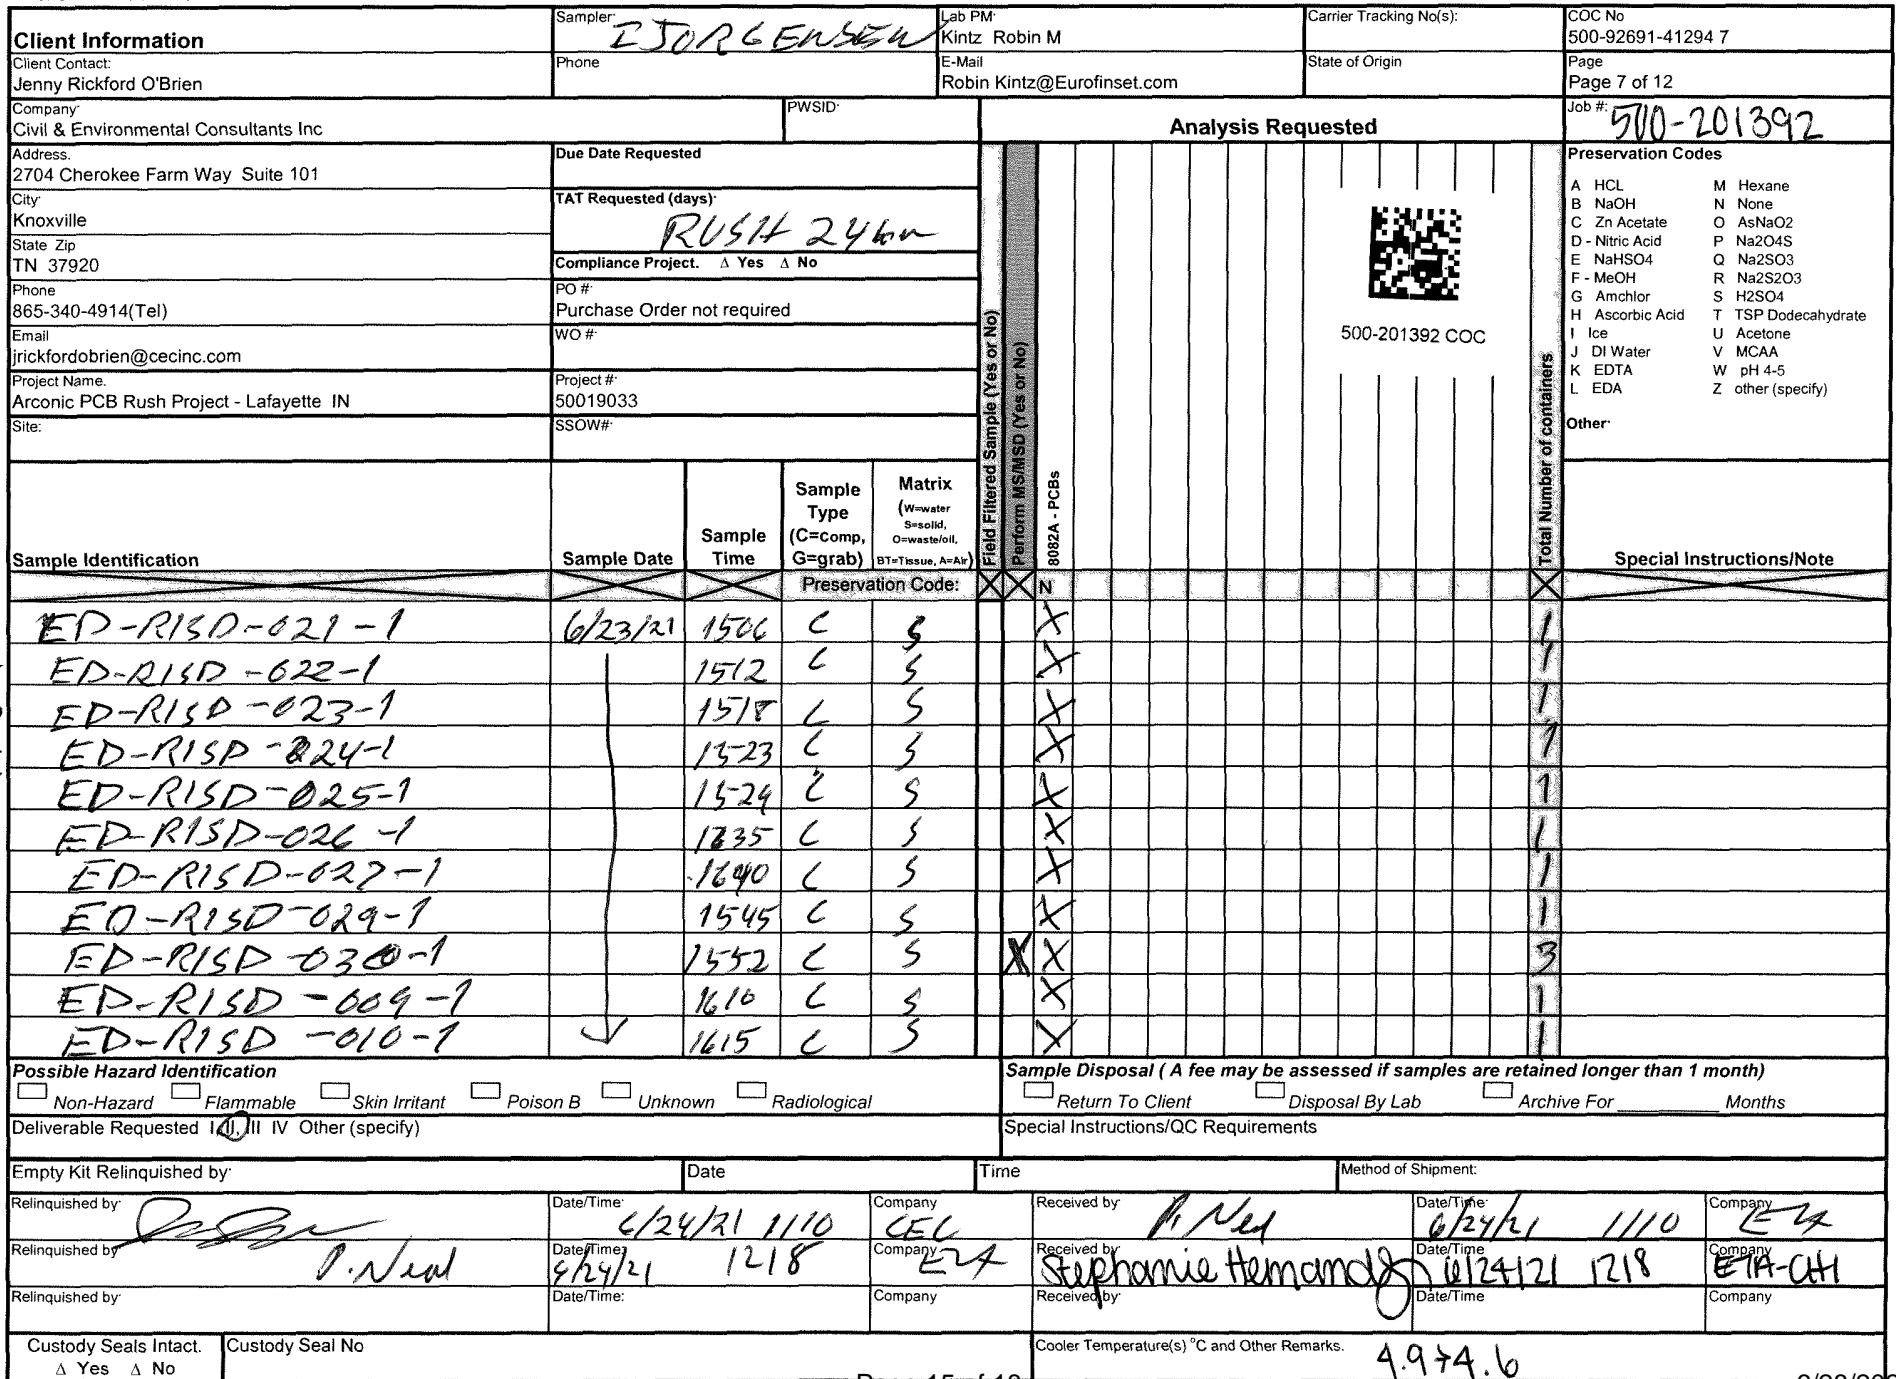 Client Information
Sampler: I JORGENSEN
Lab PM: Kintz Robin M
Carrier Tracking No(s):
COC No 500-92691-41294 7
Client Contact: Jenny Rickford O'Brien
Phone
E-Mail Robin Kintz@Eurofinset.com
State of Origin
Page Page 7 of 12
Company Civil & Environmental Consultants Inc
PWSID:
Analysis Requested
Job #: 500-201392
Address. 2704 Cherokee Farm Way Suite 101
Due Date Requested
City Knoxville
TAT Requested (days): RUSH 24hr
State Zip TN 37920
Compliance Project. Δ Yes Δ No
Phone 865-340-4914(Tel)
PO #: Purchase Order not required
Email jrickfordobrien@cecinc.com
WO #:
Project Name. Arconic PCB Rush Project - Lafayette IN
Project #: 50019033
Site:
SSOW#:
500-201392 COC
Preservation Codes
A HCL M Hexane
B NaOH N None
C Zn Acetate O AsNaO2
D - Nitric Acid P Na2O4S
E NaHSO4 Q Na2SO3
F - MeOH R Na2S2O3
G Amchlor S H2SO4
H Ascorbic Acid T TSP Dodecahydrate
I Ice U Acetone
J DI Water V MCAA
K EDTA W pH 4-5
L EDA Z other (specify)
Other:
Sample Identification
Sample Date
Sample Time
Sample Type (C=comp, G=grab)
Matrix (W=water S=solid, O=waste/oil, BT=Tissue, A=Air)
Field Filtered Sample (Yes or No)
Perform MS/MSD (Yes or No)
8082A - PCBs
Total Number of containers
Special Instructions/Note
Preservation Code: X X N X
ED-RISD-021-1 6/23/21 1506 C S X 1
ED-RISD-022-1 1512 C S X 1
ED-RISD-023-1 1518 C S X 1
ED-RISD-024-1 1523 C S X 1
ED-RISD-025-1 1529 C S X 1
ED-RISD-026-1 1535 C S X 1
ED-RISD-027-1 C S X 1
ED-RISD-029-1 1545 C S X 1
ED-RISD-030-1 1552 C S X X 3
ED-RISD-009-1 1610 C S X 1
ED-RISD-010-1 1615 C S X 1
Possible Hazard Identification
Non-Hazard Flammable Skin Irritant Poison B Unknown Radiological
Sample Disposal ( A fee may be assessed if samples are retained longer than 1 month)
Return To Client Disposal By Lab Archive For Months
Deliverable Requested I, II, III IV Other (specify)
Special Instructions/QC Requirements
Empty Kit Relinquished by:
Date
Time
Method of Shipment:
Relinquished by: Date/Time: 6/24/21 1110 Company CEC Received by: P. Neal Date/Time: 6/24/21 1110 Company ETA
Relinquished by P. Neal Date/Time: 6/24/21 1218 Company ETA Received by: Stephanie Hernandez Date/Time 6/24/21 1218 Company ETA-CHI
Relinquished by: Date/Time: Company Received by: Date/Time Company
Custody Seals Intact. Δ Yes Δ No
Custody Seal No
Cooler Temperature(s) °C and Other Remarks. 4.9→4.6